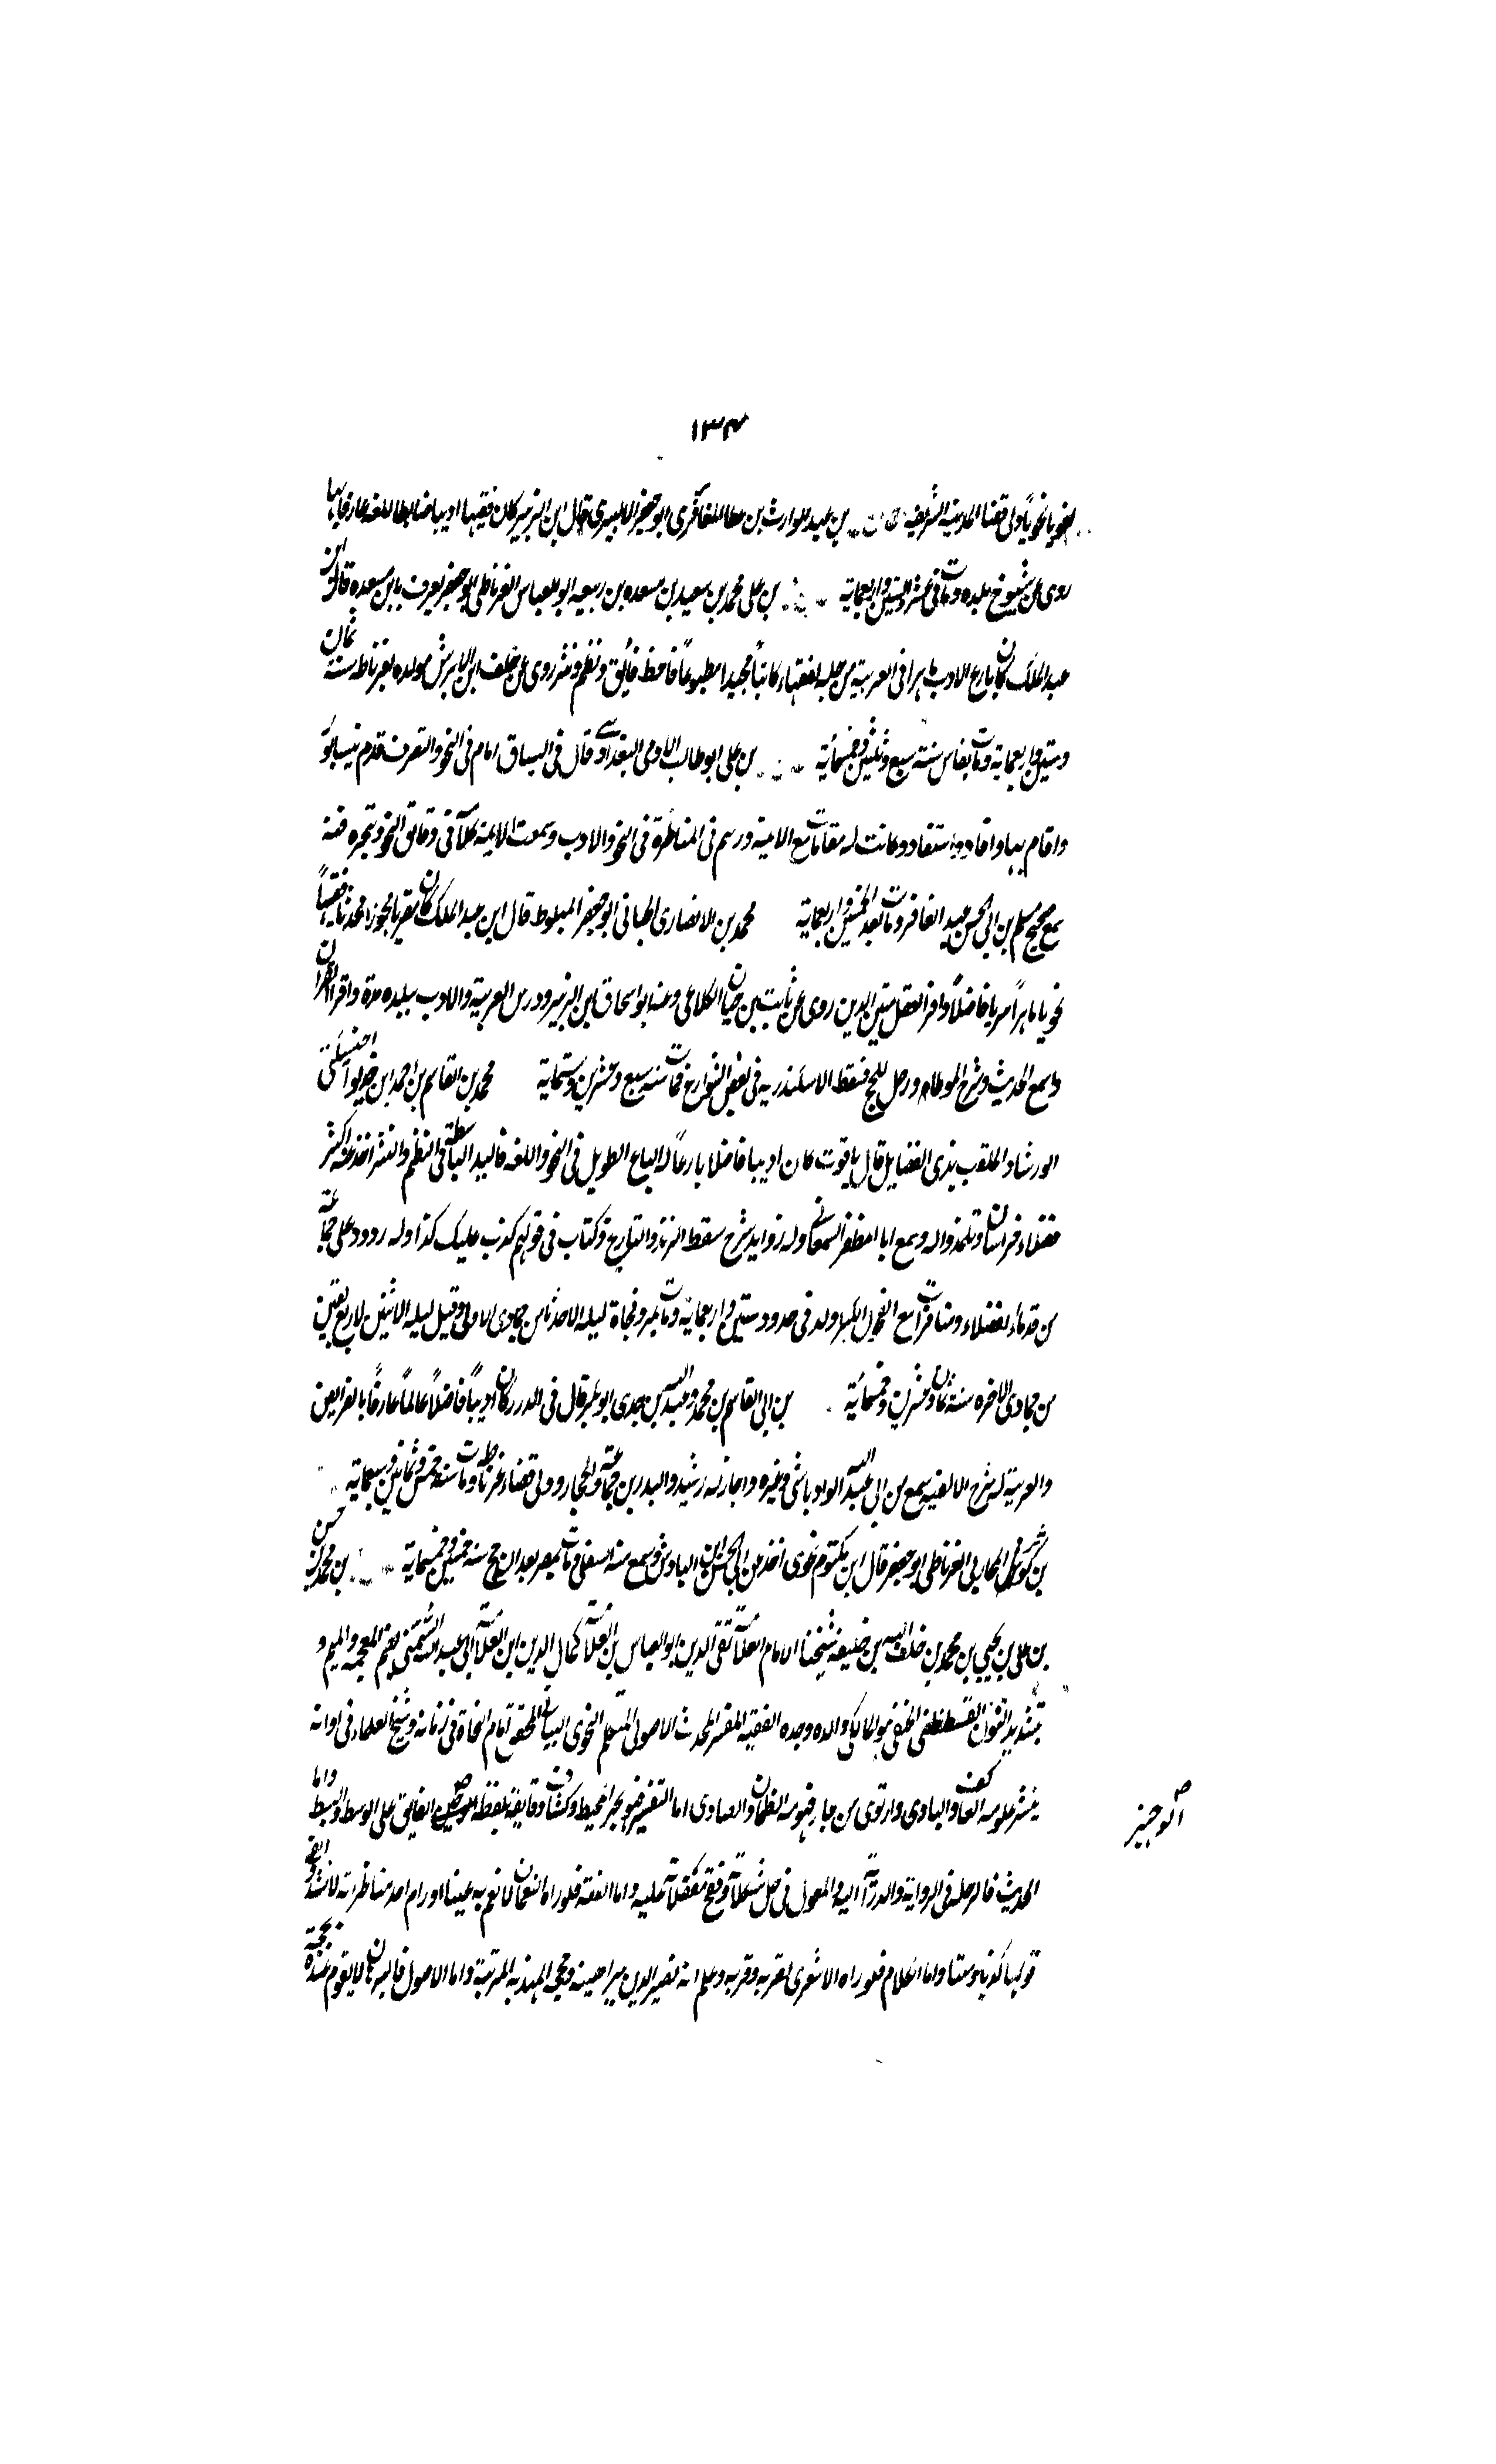 ١٣٤
لغويا نحوياً ولى قضا المدينة الشريفة بن عبد الوارث بن عطا الغافقرى ابو جعفر الالبيرى قال ابن الزبير كان فقيها اديبا ضابطا للغه عارفا بها
روى عن شيوخ بلده ومات فى عشر الستين واربعماية بن على محمد بن سعيد بن مسعده بن ربيعه ابو العباس الغرناطى ابو جعفر يعرف بابن مسعده قال ابن
عبد الملك كان بارع الادب ماهرا فى العربية من جلة الفقهاء كاتباً مجيدا مطبوعاً فاحظ فايق ونظم ونثر روى عن خلف ابن الابرش مولده بغرناطه سنة ثمان
وستين واربعماية ومات بفاس سنة سبع وثلثين وخمسماية بن على ابو طالب الادمى البغدادى قال فى السياق امام فى النحو والتصرف قدم نيسابور
واقام بها وافاد واستفاد وكانت له مقامات مع الايمة ورسم فى المناظرة فى النحو والادب وسمعت الايمة كلامه فى دقائق النحو وتبحره فيه
سمع صحيح مسلم بن ابى الحسن عبد الغافر ومات بعد الخمسين واربعماية محمد بن الانصارى الجيانى ابو جعفر المبلوط قال ابن عبد الملك كان مقريا مجودا محدثا فقيهاً
نحويا ماهراً سريا فاضلاً وافر العقل متين الدين روى عن ثابت بن خيان الكلاعى وعنه ابو اسحاق ابن الزبير ودرس العربية والادب ببلده مدة واقرا القران
واسمع الحديث وشرح الموطاء ورحل للحج فسقط الاسكندريه فى بعض الشوارع فمات سنه سبع وعشرين وستماية محمد بن القاسم بن احمد ابن خديوا اخسيكتى
ابو رشاد الملقب بذى الفضايل قال ياقوت كان اديبا فاضلا بارعاً له الباع الطويل فى النحو واللغه فاليد الباسطة فى النظم والنثر اخذ عنه اكثر
فضلاء خراسان وتلمذوا له وسمع ابا المظفر السمعانى وله زوايد شرح سقط الزند والتاريخ وكتاب فى قولهم كذب عليك كذا وله ردود على جماعة
من قدماء الفضلاء ومنافرات مع الفحول الكبر ولد فى حدود ستين واربعماية ومات بمرو فجاة ليلة الاحد ثامن جمادى الاولى وقيل ليله الاثنين لاربع بقين
من جمادى الاخره سنة ثمان وعشرين وخمسماية بن ابى القاسم بن محمد وعبد الله بن جدى ابو عمر قال فى الدرر كان اديباً فاضلاً عالماً عارفاً بالفرايض
والعربية له شرح الالفيه سمع من ابى عبد الله الوادياشى وغيره واجاز له رشيد والبدر بن جماعة والحجار وولى قضاء غرناطه ومات سنه خمس وثمانين وسبعماية
بن كوثر المحاربى الغرناطى ابو جعفر قال ابن مكتوم نحوى اخذ عن ابى الحسن ابن الباذش وسمع منه السلفى ومات بمصر بعد ان حج سنه خمسين وخمسماية بن محمد بن حسن
بن على بن يحيى بن محمد بن خلف الله بن خليفه شيخنا الامام العلامة تقى الدين ابو العباس بن العلامة كمال الدين ابن العلامة ابى عبد الله الشمنى بضم المعجمه والميم و
بتشديد النون القسطنطينى الحنفى هو المالكى والده وجده الفقيه المفسر المحدث الاصولى المتكلم النحوى البيانى المحقق امام النحاة فى زمانه وشيخ العلماء فى اوانه
ينشر علومه العاكف والبادى وارتوى من بحار فهومه الظمان والصادى اما التفسير فهو بحره المحيط وكشاف دقايقه بلفظه الفايق على الوسيط والبسيط واما
الحديث فالرحله فى الرواية والدراية اليه والمعول فى حل مشكلاته وفتح مقفلاته عليه واما الفقه فلو راه النعمان لانعم به عينا او رام احد مناظرته لانشد والفى
قولها كذبا ومينا واما الكلام فلو راه الاشعرى لقربه وقربه وعلم انه نصير الدين ببراهينه وحججه المهذبه المرتبة واما الاصول فالبرهان لا يقوم عنده بحجته
الوجيز صح